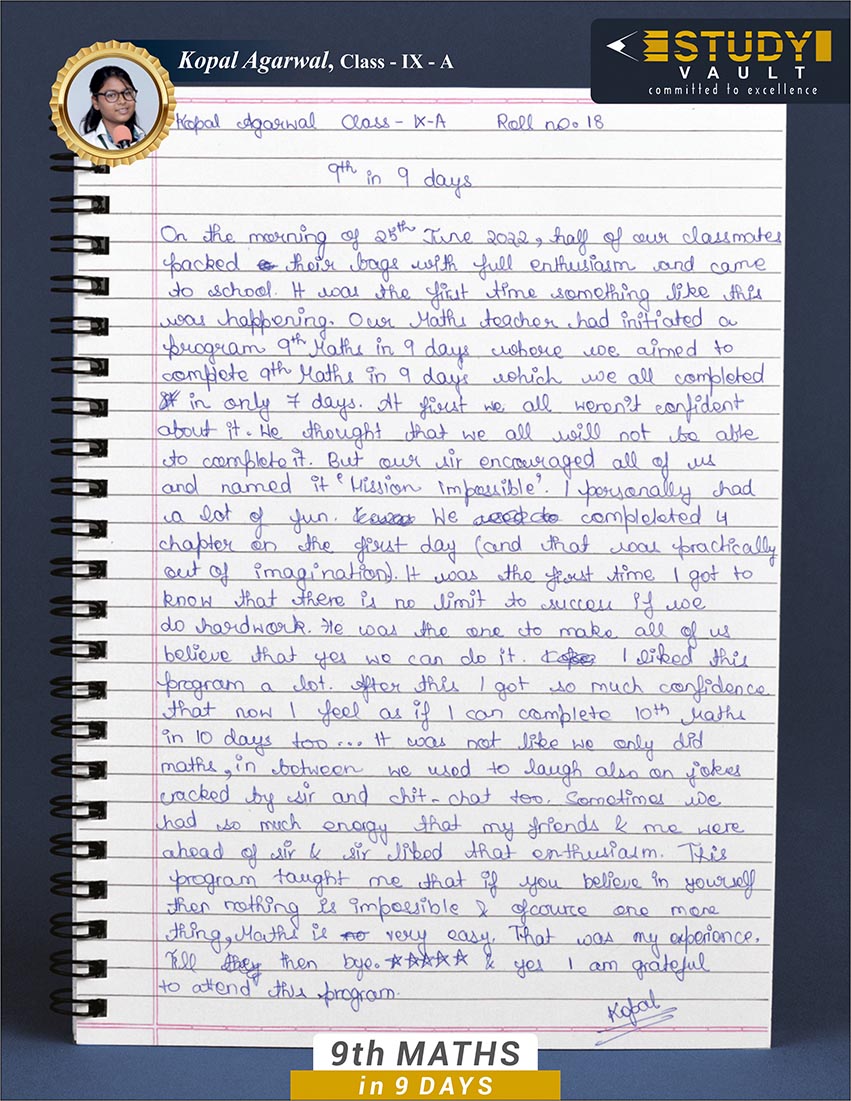 Kopal Agarwal, Class - IX - A
STUDY
VAULT
committed to excellence
Kopal Agarwal Class - IX-A Roll no. 18
9th in 9 days
On the morning of 25th June 2022, half of our classmates
packed their bags with full enthusiasm and came
to school. It was the first time something like this
was happening. Our Maths teacher had initiated a
program 9th Maths in 9 days where we aimed to
complete 9th Maths in 9 days which we all completed
in only 7 days. At first we all weren't confident
about it. We thought that we all will not be able
to complete it. But our sir encouraged all of us
and named it 'Mission Impossible'. I personally had
a lot of fun. We compleleted 4
chapter on the first day (and that was practically
out of imagination). It was the first time I got to
know that there is no limit to success if we
do hardwork. He was the one to make all of us
believe that yes we can do it. I liked this
program a lot. After this I got so much confidence
that now I feel as if I can complete 10th Maths
in 10 days too... It was not like we only did
maths, in between we used to laugh also on jokes
cracked by sir and chit-chat too. Sometimes we
had so much energy that my friends & me were
ahead of sir & sir liked that enthusiasm. This
program taught me that if you believe in yourself
then nothing is impossible & ofcource one more
thing, Maths is very easy. That was my experience.
Till then bye. ☆☆☆☆☆ & yes I am grateful
to attend this program.
Kopal
9th MATHS
in 9 DAYS